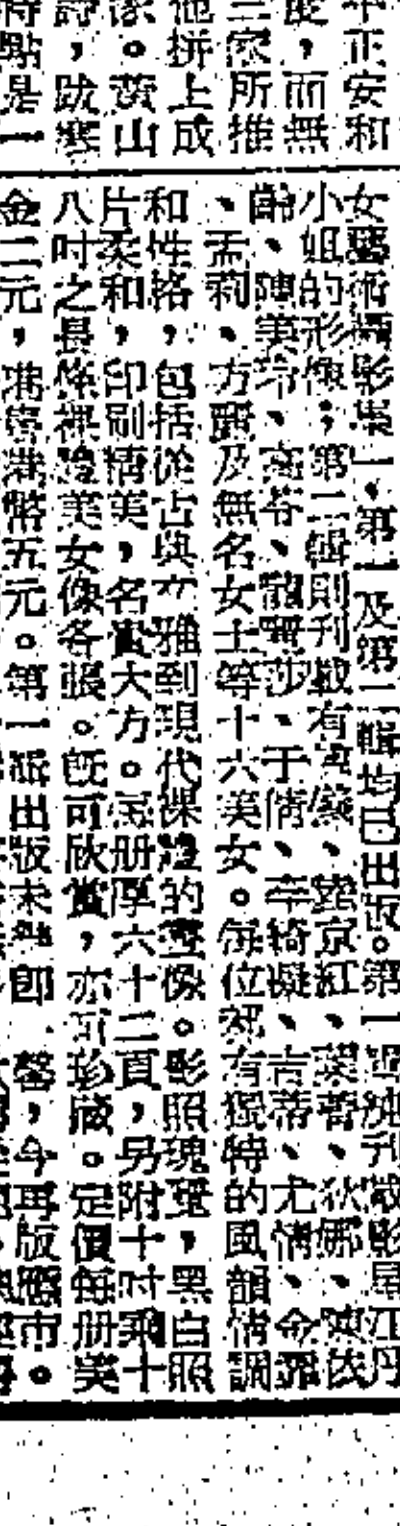 平正安和
度，而無
三家所推
他拼上成
家。黃山
詩，跋寒
時點是一
女藝術攝影集一，第一及第二輯均已出版。第一輯純刊載影星江丹
小姐的形像；第二輯則刊載有、露京紅、葉蒨、狄娜、陳依
齡、陳美玲、高苓、龍寶莎、于倩、辛綺凝、吉蒂、尤情、金霏
、孟莉、方麗及無名女士等十六美女。每位都有獨特的風韻情調
和性格，包括從古典文雅到現代裸體的靈像。影照瑰麗，黑白照
片柔和，印刷精美，名貴大方。每册厚六十二頁，另附十吋乘十
八吋之長條裸體美女像各張。既可欣賞，亦可珍藏。定價每册美
金二元，港幣五元。第一版出版未幾即罄，今再版應市。